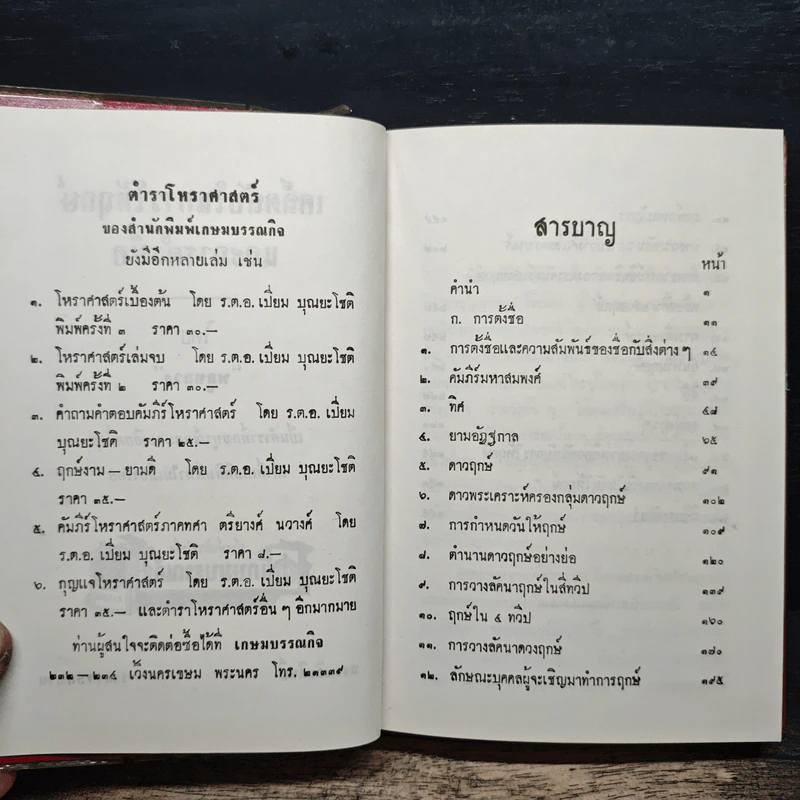 ตำราโหราศาสตร์
ของสำนักพิมพ์เกษมบรรณกิจ
ยังมีอีกหลายเล่ม เช่น
๑. โหราศาสตร์เบื้องต้น โดย ร.ต.อ. เปี่ยม บุณยะโชติ
พิมพ์ครั้งที่ ๓ ราคา ๓๐.—
๒. โหราศาสตร์เล่มจบ โดย ร.ต.อ. เปี่ยม บุณยะโชติ
พิมพ์ครั้งที่ ๒ ราคา ๓๐.—
๓. คำถามคำตอบคัมภีร์โหราศาสตร์ โดย ร.ต.อ. เปี่ยม
บุณยะโชติ ราคา ๒๕.—
๔. ฤกษ์งาม — ยามดี โดย ร.ต.อ. เปี่ยม บุณยะโชติ
ราคา ๓๕.—
๕. คัมภีร์โหราศาสตร์ภาคทคา ตรียางค์ นวางค์ โดย
ร.ต.อ. เปี่ยม บุณยะโชติ ราคา ๘.—
๖. กุญแจโหราศาสตร์ โดย ร.ต.อ. เปี่ยม บุณยะโชติ
ราคา ๓๕.— และตำราโหราศาสตร์อื่น ๆ อีกมากมาย
ท่านผู้สนใจจะติดต่อซื้อได้ที่ เกษมบรรณกิจ
๒๓๒ — ๒๓๔ เวิ้งนครเขษม พระนคร โทร. ๒๑๓๓๙
สารบาญ
หน้า
คำนำ ๑
ก. การตั้งชื่อ ๑๑
๑. การตั้งชื่อและความสัมพันธ์ของชื่อกับสิ่งต่าง ๆ ๑๔
๒. คัมภีร์มหาสมพงศ์ ๓๙
๓. ทิศ ๔๘
๔. ยามอัฏฐกาล ๖๕
๕. ดาวฤกษ์ ๙๑
๖. ดาวพระเคราะห์ครองกลุ่มดาวฤกษ์ ๑๐๒
๗. การกำหนดวันให้ฤกษ์ ๑๐๙
๘. ตำนานดาวฤกษ์อย่างย่อ ๑๒๐
๙. การวางลัคนาฤกษ์ในสี่ทวีป ๑๓๙
๑๐. ฤกษ์ใน ๔ ทวีป ๑๖๐
๑๑. การวางลัคนาดวงฤกษ์ ๑๗๐
๑๒. ลักษณะบุคคลผู้จะเชิญมาทำการฤกษ์ ๑๙๕